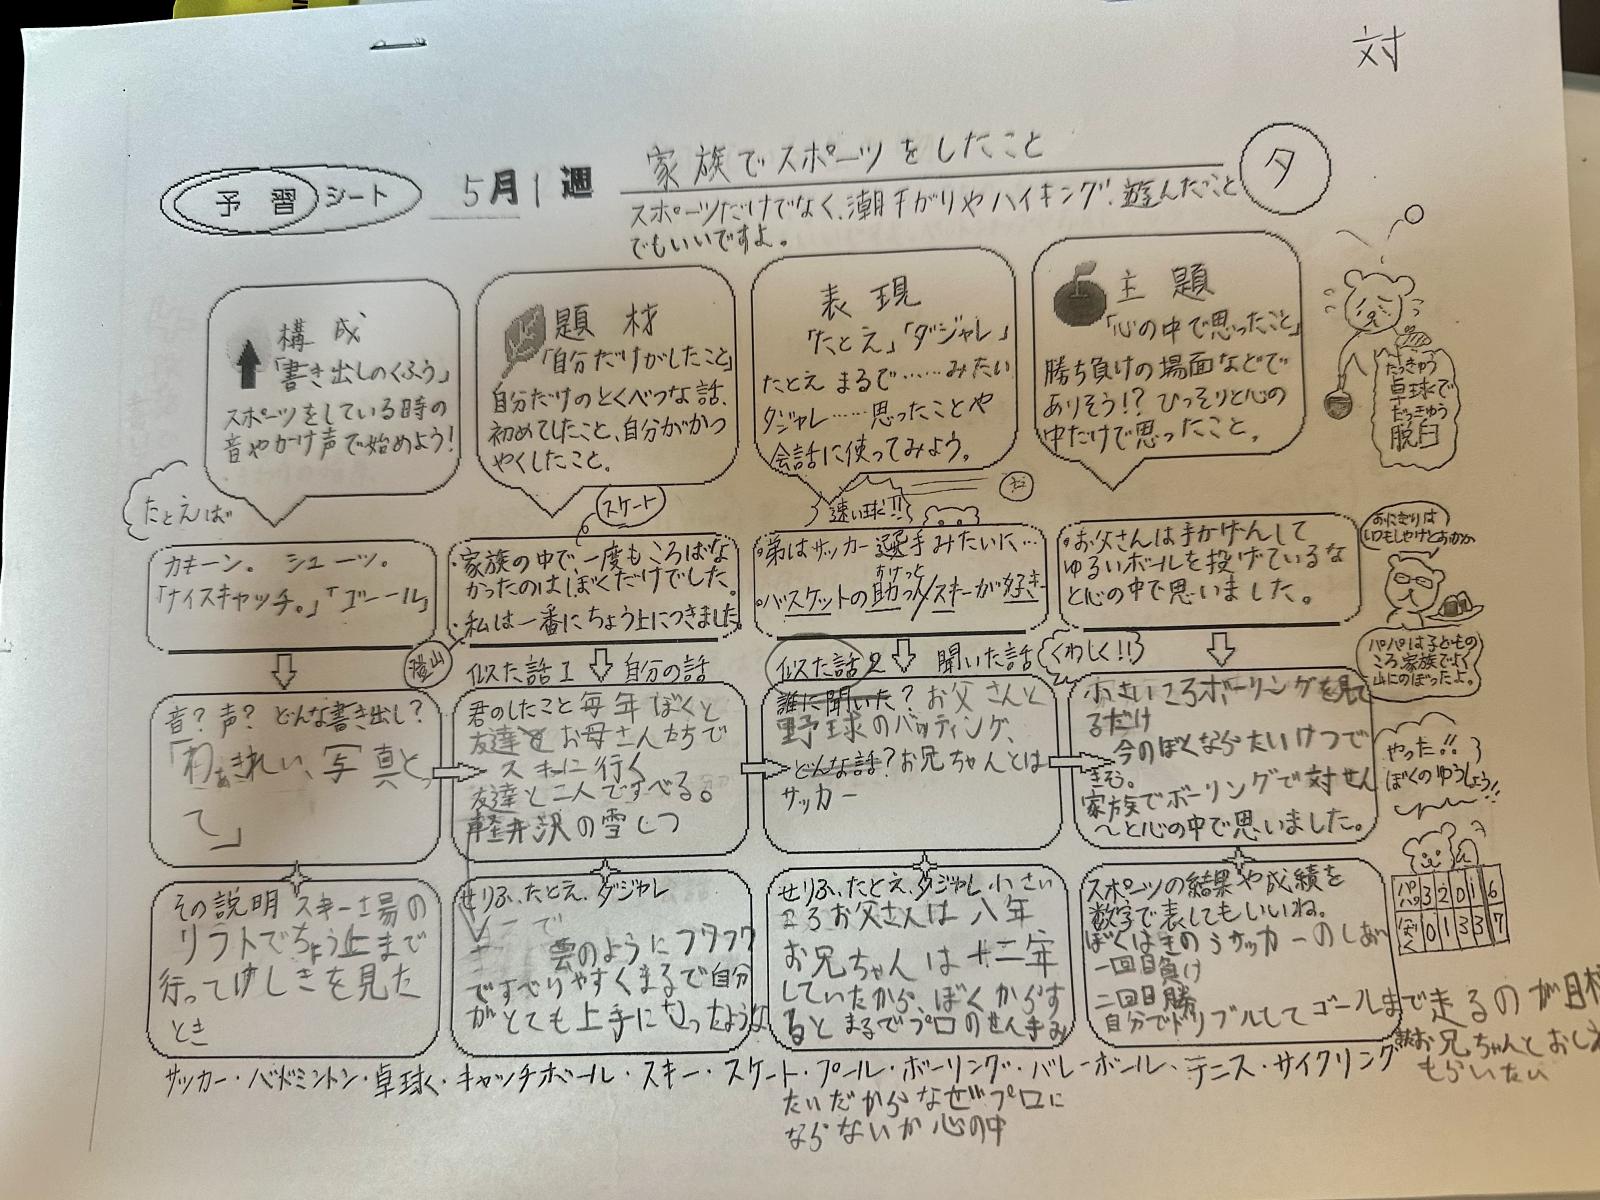 対
予習シート
5月1週
家族でスポーツをしたこと
夕
スポーツだけでなく、潮干がりやハイキング、遊んだこと
でもいいですよ。
構成
「書き出しのくふう」
スポーツをしている時の
音やかけ声で始めよう!
題材
「自分だけがしたこと」
自分だけのとくべつな話、
初めてしたこと、自分がかつ
やくしたこと。
表現
「たとえ」「ダジャレ」
たとえ まるで……みたい
ダジャレ……思ったことや
会話に使ってみよう。
主題
「心の中で思ったこと」
勝ち負けの場面などで
ありそう!? ひっそりと心の
中だけで思ったこと。
たっきゅう
卓球で
だっきゅう
脱臼
たとえば
カキーン。 シューッ。
「ナイスキャッチ。」「ゴール」
スケート
・家族の中で、一度もころばな
かったのはぼくだけでした。
・私は一番にちょう上につきました。
速い球!!
・弟はサッカー選手みたいに…
おけっと
・バスケットの助っ人/スキーが好きー
・お父さんは手かげんして
ゆるいボールを投げているな
と心の中で思いました。
おにぎりは
いつもしゃけとおかか
パパは子どもの
ころ、家族でよく
山にのぼったよ。
音?声? どんな書き出し?
「わぁきれい、写真とっ
て」
似た話1 自分の話
君のしたこと 毎年ぼくと
友達とお母さんたちで
スキーに行く
友達と二人ですべる。
軽井沢の雪しつ
似た話2 聞いた話
誰に聞いた? お父さんと
野球のバッティング、
どんな話? お兄ちゃんとは
サッカー
くわしく!!
小さいころボーリングを見て
るだけ
今のぼくならたいけつで
きそう。
家族でボーリングで対せん
〜と心の中で思いました。
やった!!
ぼくのゆうしょう!!
その説明 スキー場の
リフトでちょう上まで
行ってけしきを見た
とき
せりふ、たとえ、ダジャレ
雲のようにフワフワ
ですべりやすくまるで自分
がとても上手になったような
せりふ、たとえ、ダジャレ 小さい
ころお父さんは八年
お兄ちゃんは十二年
していたからぼくからす
るとまるでプロのせん手み
たいだからなぜプロに
ならないか心の中
スポーツの結果や成績を
数字で表してもいいね。
ぼくはきのうサッカーのしあい
一回目負け
二回目勝
自分でドリブルしてゴールまで走るのが目標
お兄ちゃんとおしえ
もらいたい
パパ 3 2 0 1 6
ぼく 0 1 3 3 7
サッカー・バドミントン・卓球・キャッチボール・スキー・スケート・プール・ボーリング・バレーボール・テニス・サイクリング